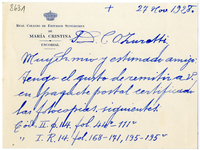 863A
+ 27 Nov 1928.
REAL COLEGIO DE ESTUDIOS SUPERIORES
DE
MARÍA CRISTINA
ESCORIAL
D. C. O. Zuretti
Muy Sr. mio y estimado amigo:
tengo el gusto de remitir a V.
en paquete postal certificado
las fotocopias siguientes:
Cód. II. Φ. 14. fol.
" I. R. 14. fol. 168-191, 195-195v